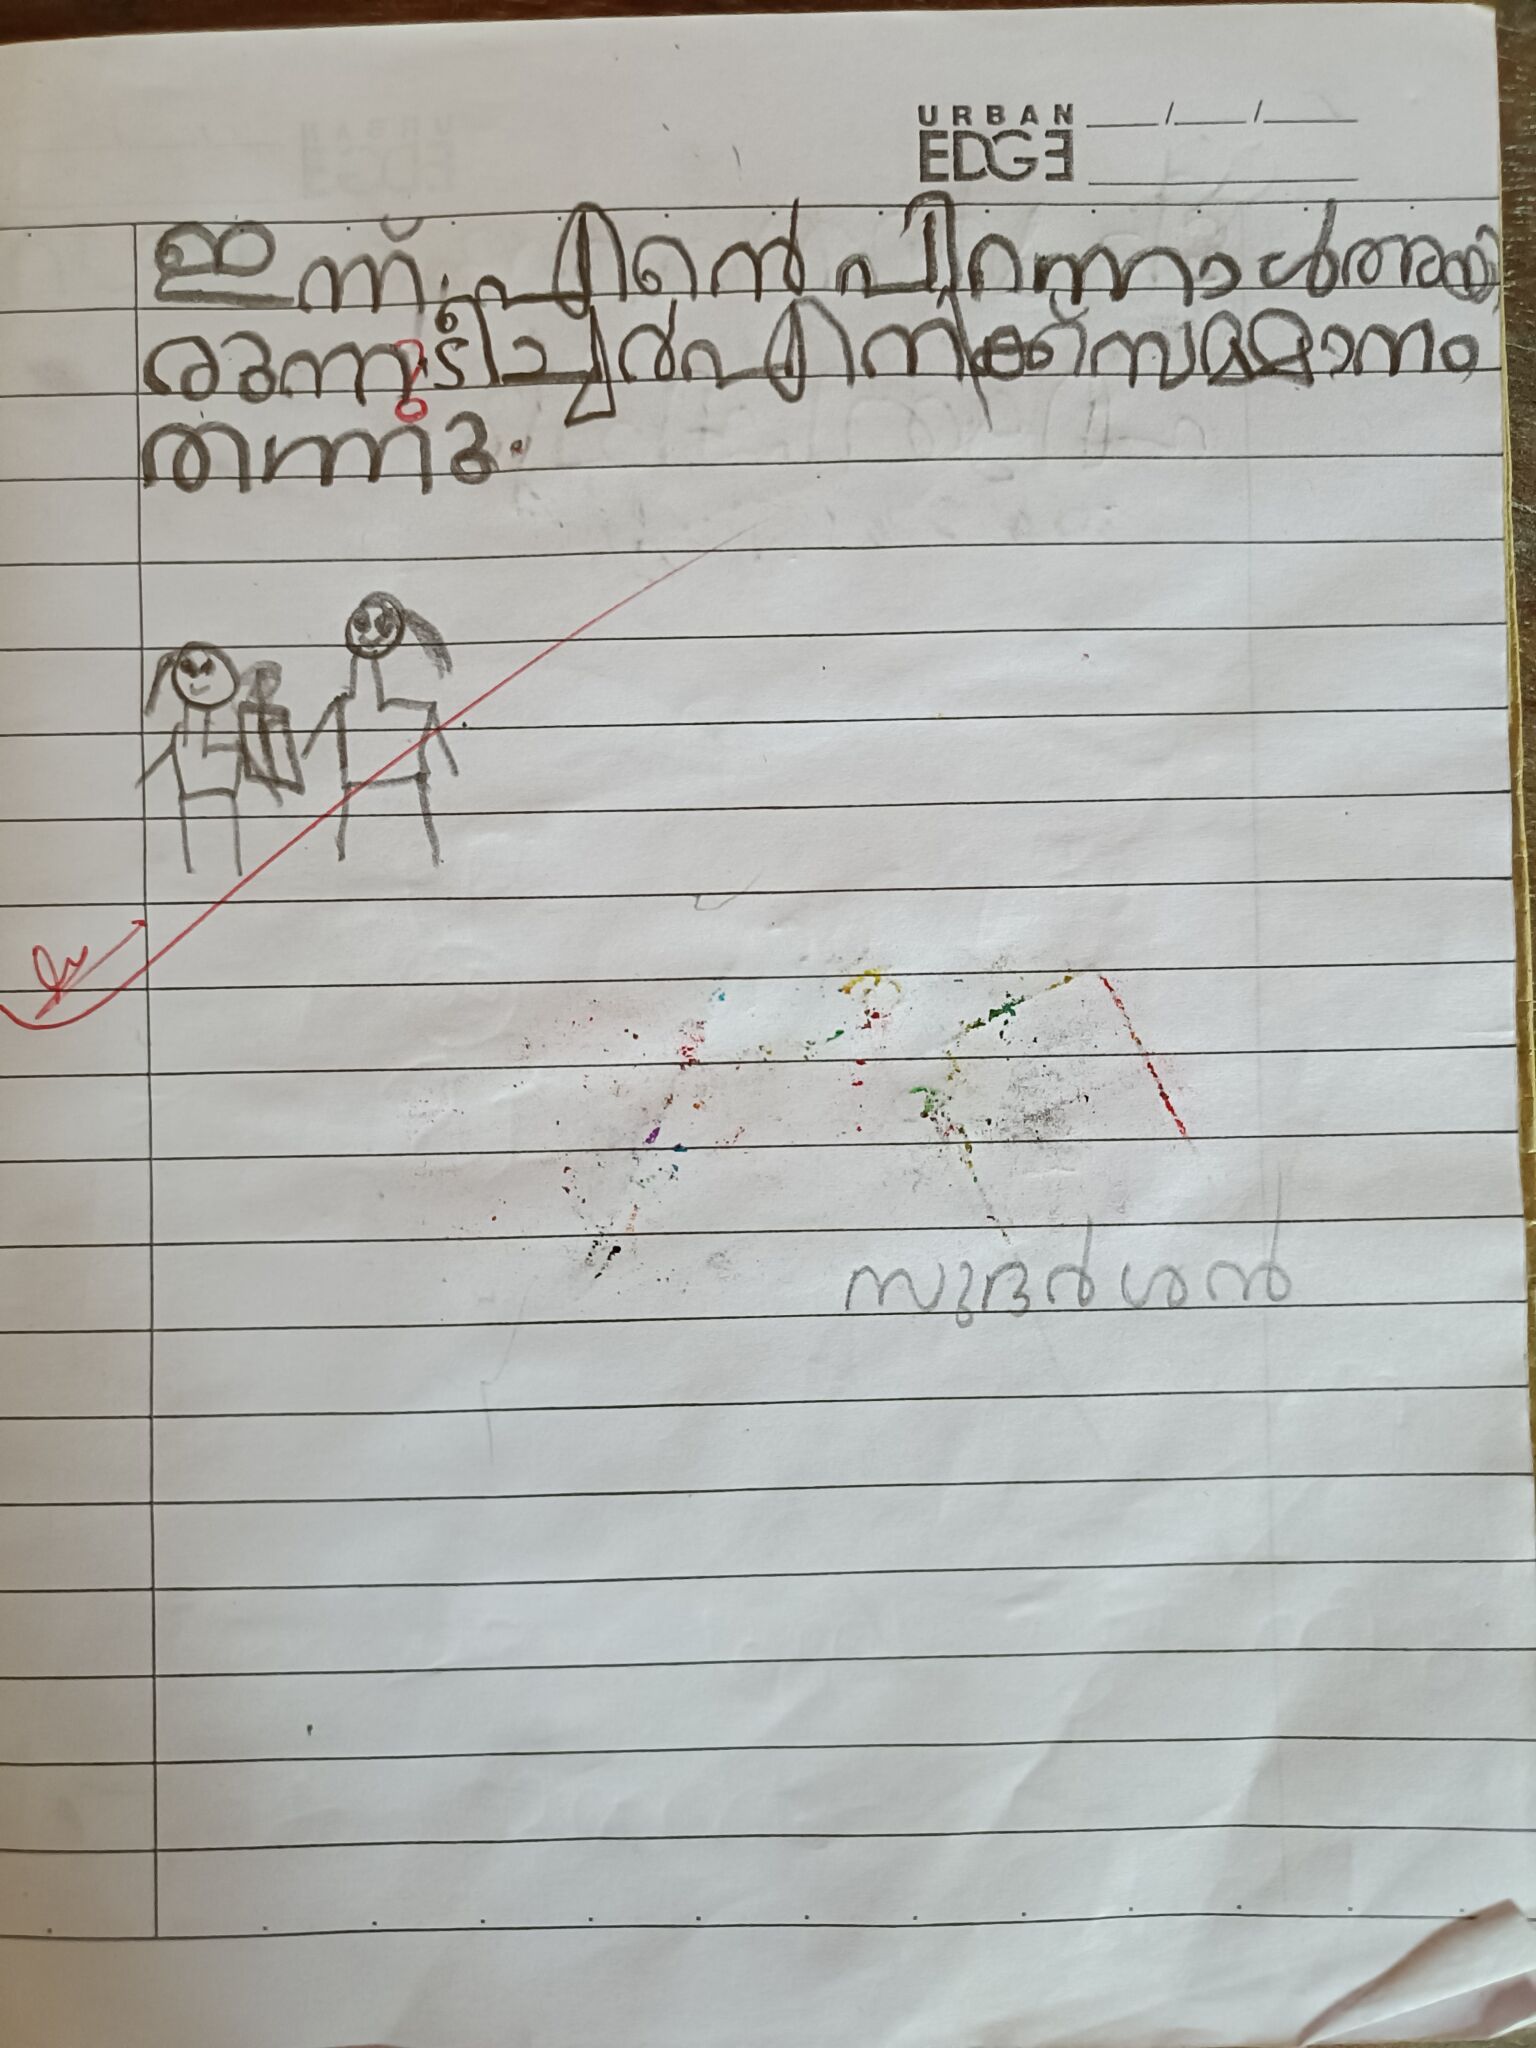 URBAN
EDGE
ഇന്ന് എൻെ പിറന്നാൾ അയി
രുന്നു ടീച്ചർ എനിക്ക് സമ്മാനം
തന്നു.
സുദർശൻ